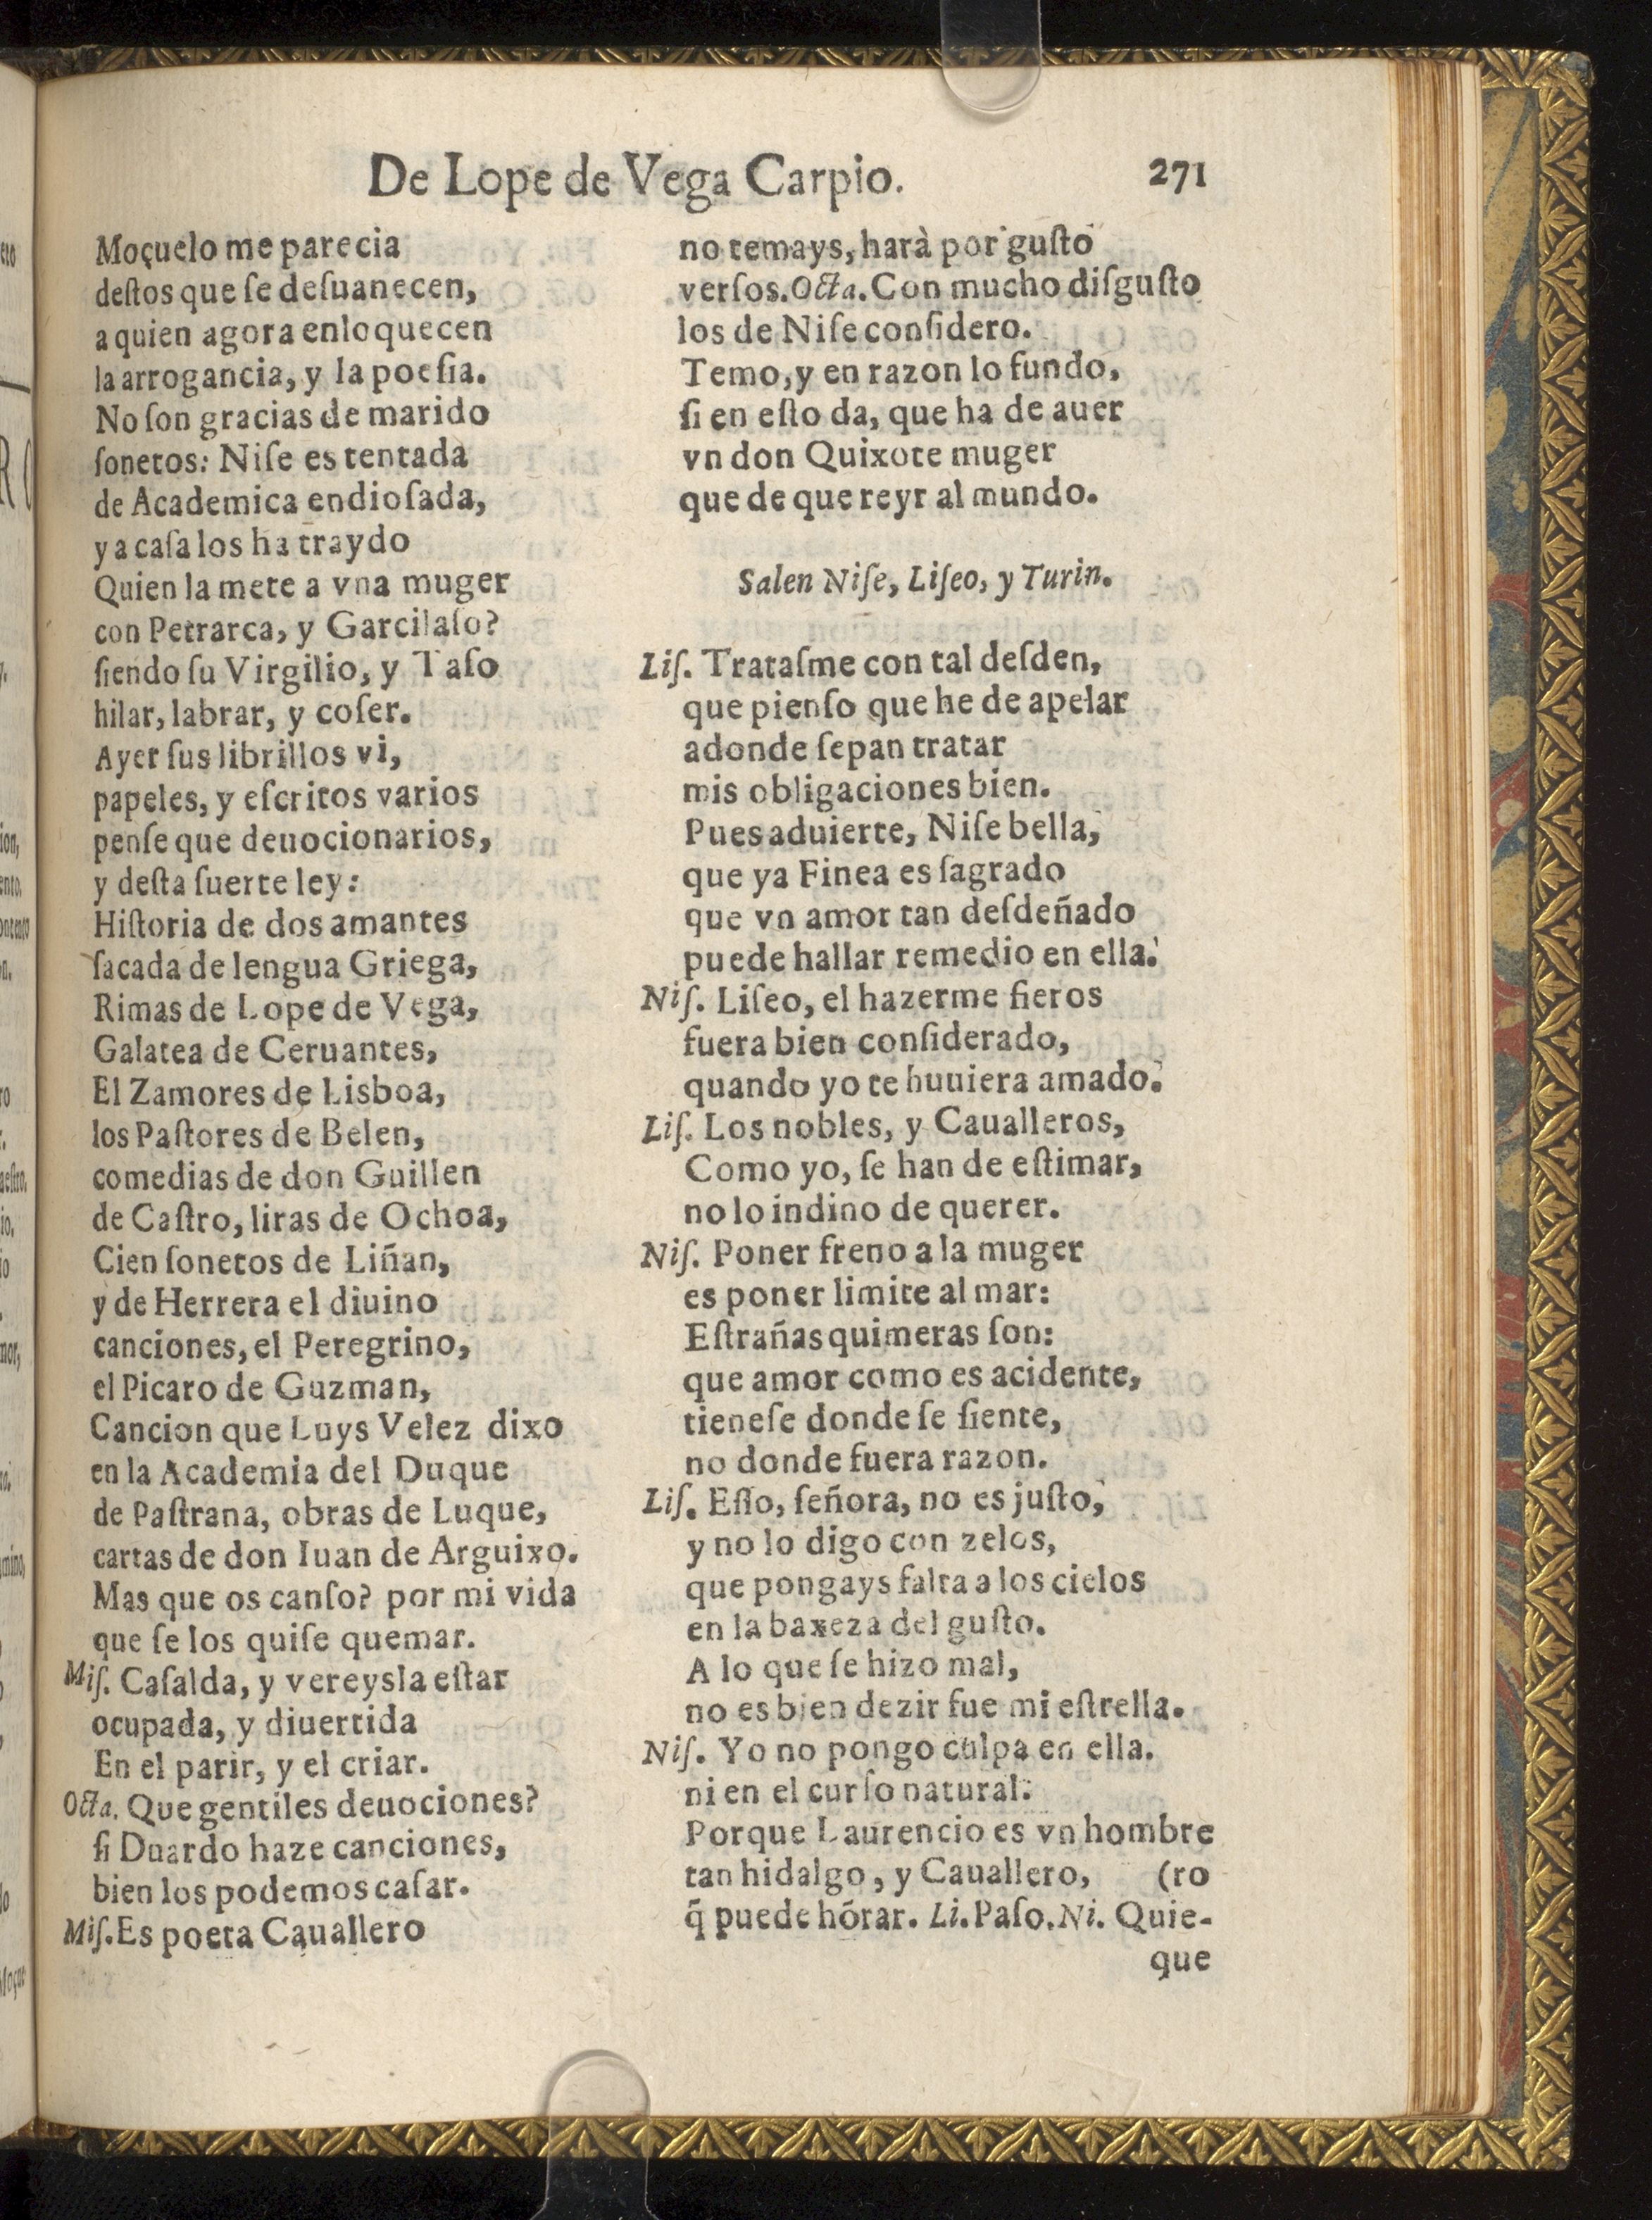 De Lope de Vega Carpio. 271
Moçuelo me parecia
deſtos que ſe deſuanecen,
a quien agora enloquecen
la arrogancia, y la poeſia.
No ſon gracias de marido
ſonetos: Niſe es tentada
de Academica endioſada,
y a caſa los ha traydo
Quien la mete a vna muger
con Petrarca, y Garcilaſo?
ſiendo ſu Virgilio, y Taſo
hilar, labrar, y coſer.
Ayer ſus librillos vi,
papeles, y eſcritos varios
penſe que deuocionarios,
y deſta ſuerte ley:
Hiſtoria de dos amantes
ſacada de lengua Griega,
Rimas de Lope de Vega,
Galatea de Ceruantes,
El Zamores de Lisboa,
los Paſtores de Belen,
comedias de don Guillen
de Caſtro, liras de Ochoa,
Cien ſonetos de Liñan,
y de Herrera el diuino
canciones, el Peregrino,
el Picaro de Guzman,
Cancion que Luys Velez dixo
en la Academia del Duque
de Paſtrana, obras de Luque,
cartas de don Iuan de Arguixo.
Mas que os canſo? por mi vida
que ſe los quiſe quemar.
Miſ. Caſalda, y vereysla eſtar
ocupada, y diuertida
En el parir, y el criar.
Octa. Que gentiles deuociones?
ſi Duardo haze canciones,
bien los podemos caſar.
Miſ. Es poeta Cauallero
no temays, harà por guſto
verſos. Octa. Con mucho diſguſto
los de Niſe conſidero.
Temo, y en razon lo fundo,
ſi en eſto da, que ha de auer
vn don Quixote muger
que de que reyr al mundo.
Salen Niſe, Liſeo, y Turin.
Liſ. Trataſme con tal deſden,
que pienſo que he de apelar
adonde ſepan tratar
mis obligaciones bien.
Pues aduierte, Niſe bella,
que ya Finea es ſagrado
que vn amor tan deſdeñado
puede hallar remedio en ella.
Niſ. Liſeo, el hazerme fieros
fuera bien conſiderado,
quando yo te huuiera amado.
Liſ. Los nobles, y Caualleros,
Como yo, ſe han de eſtimar,
no lo indino de querer.
Niſ. Poner freno a la muger
es poner limite al mar:
Eſtrañas quimeras ſon:
que amor como es acidente,
tieneſe donde ſe ſiente,
no donde fuera razon.
Liſ. Eſſo, ſeñora, no es juſto,
y no lo digo con zelos,
que pongays falta a los cielos
en la baxeza del guſto.
A lo que ſe hizo mal,
no es bien dezir fue mi eſtrella.
Niſ. Yo no pongo culpa en ella.
ni en el curſo natural:
Porque Laurencio es vn hombre
tan hidalgo, y Cauallero, (ro
q̃ puede hõrar. Li. Paſo. Ni. Quie-
que